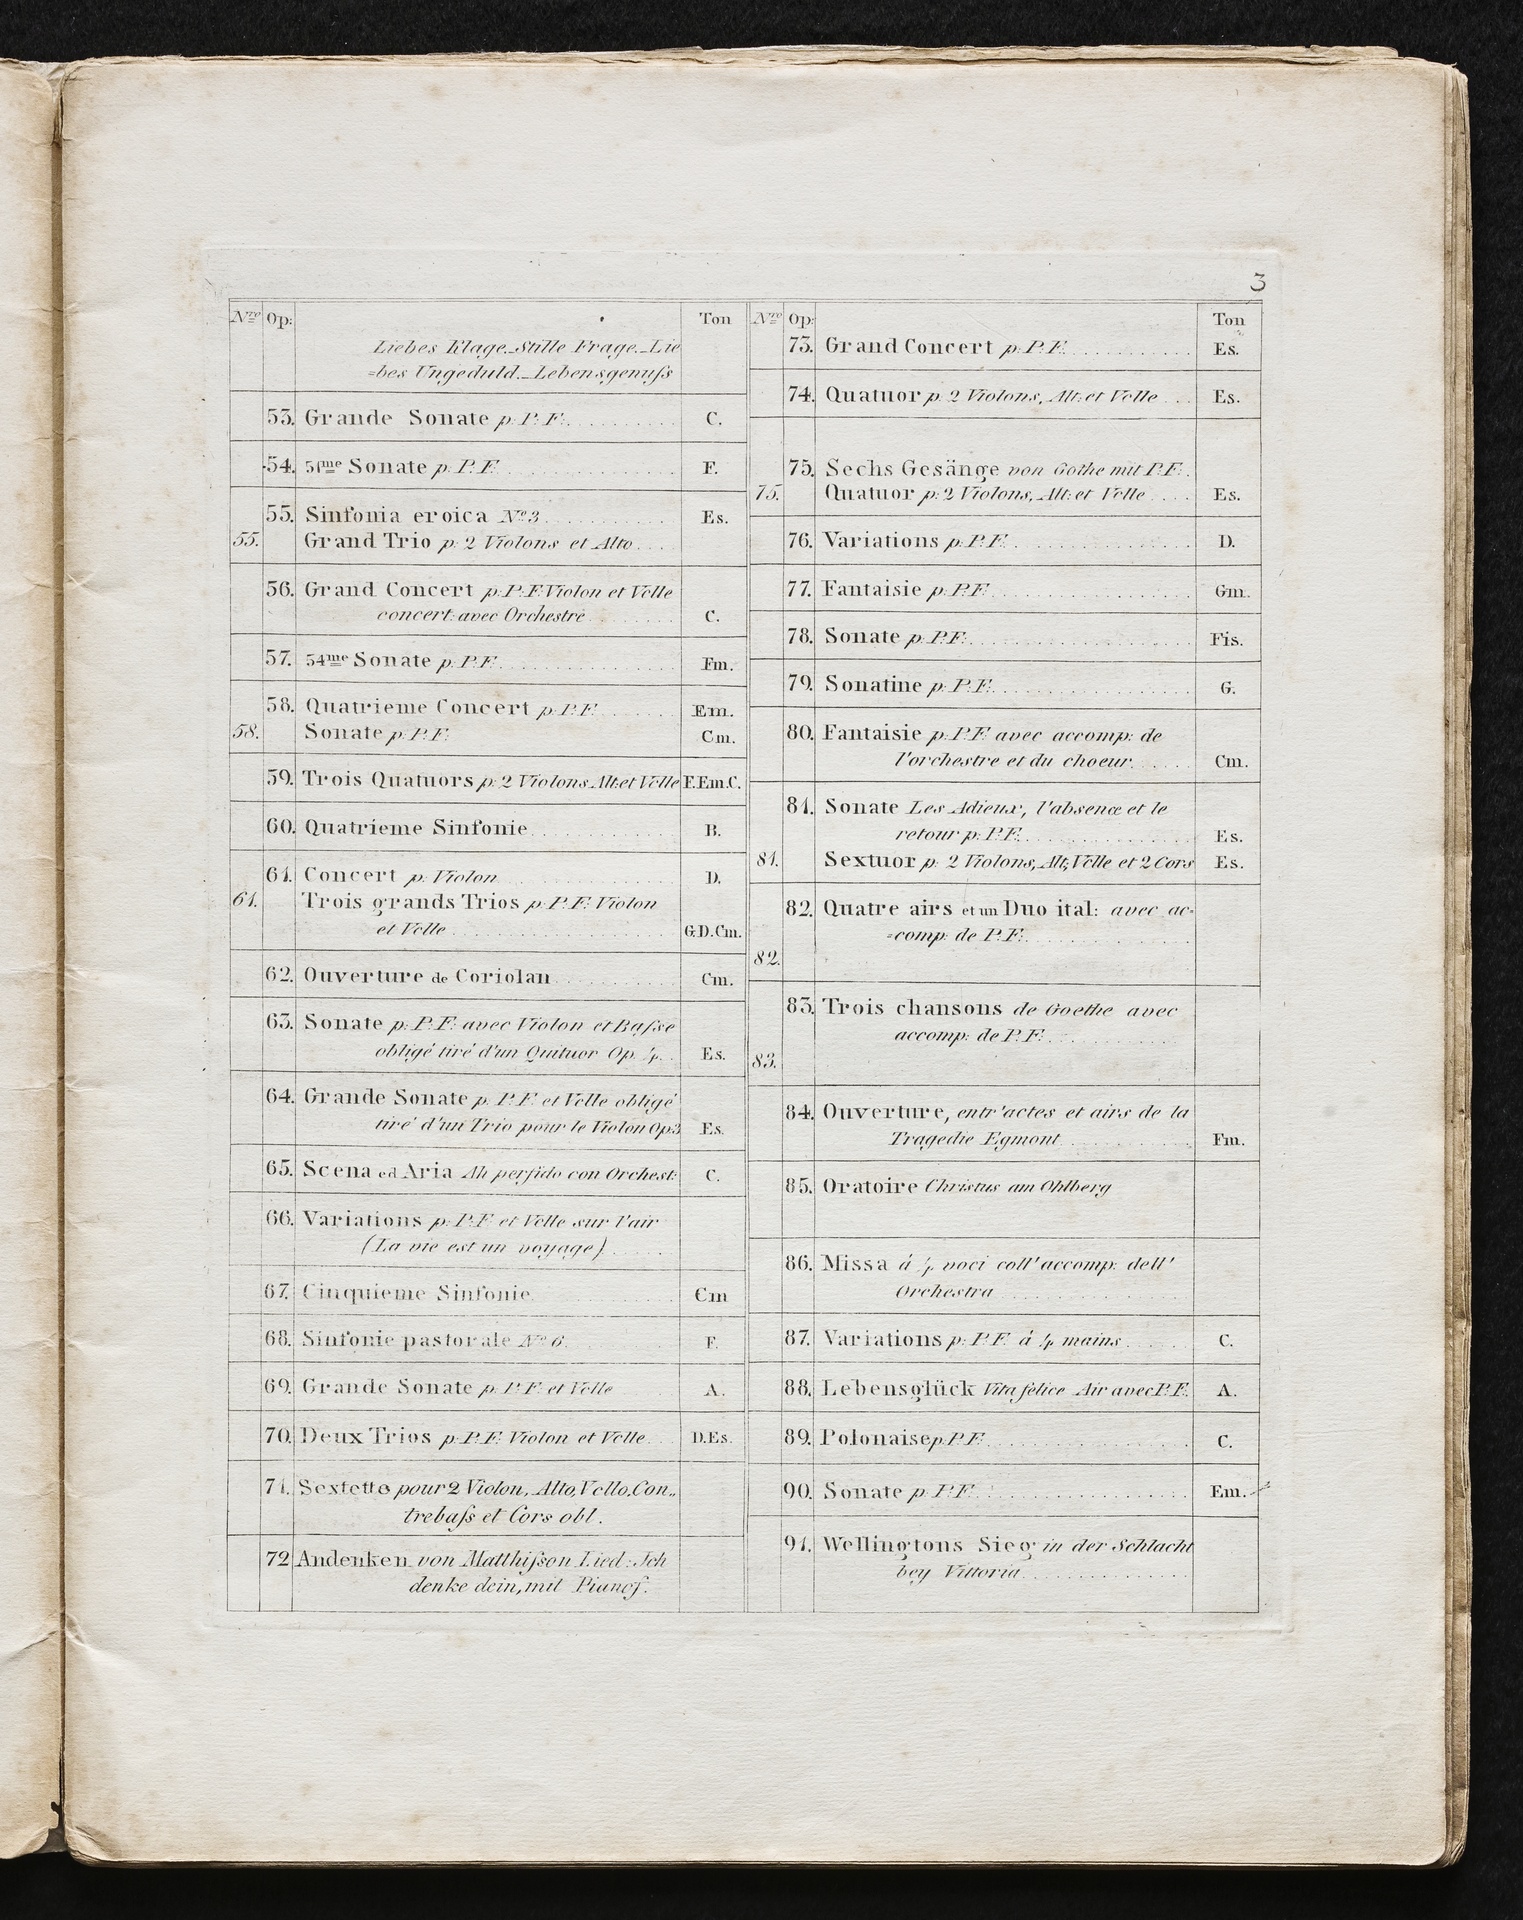 3
Nro Op: Ton
Liebes Klage._Stille Frage._Lie
=bes Ungeduld._Lebensgenuſs
53. Grande Sonate p. P. F. C.
54. 51me Sonate p. P. F. F.
55. Sinfonia eroica No 3 Es.
55. Grand Trio p. 2 Violons et Alto
56. Grand Concert p. P. F. Violon et Vclle
concert: avec Orchestre C.
57. 54me Sonate p. P. F. Fm.
58. Quatrieme Concert p. P. F. Em.
58. Sonate p. P. F. Cm.
59. Trois Quatuors p. 2 Violons Alt: et Vclle F. Em. C.
60. Quatrieme Sinfonie B.
61. Concert p. Violon D.
61. Trois grands Trios p. P. F. Violon
et Vclle G. D. Cm.
62. Ouverture de Coriolan Cm.
63. Sonate p. P. F. avec Violon et Baſse
obligé tiré d'un Quituor Op. 4. Es.
64. Grande Sonate p. P. F. et Vclle obligé
tiré d'un Trio pour le Violon Op3 Es.
65. Scena ed Aria Ah perfido con Orchest: C.
66. Variations p. P. F. et Vclle sur l'air
(La vie est un voyage)
67. Cinquieme Sinfonie Cm
68. Sinfonie pastorale No 6 F.
69. Grande Sonate p. P. F. et Vclle A.
70. Deux Trios p. P. F. Violon et Vclle D. Es.
71. Sextetto pour 2 Violon, Alto, Vcllo, Con„
trebaſs et Cors obl.
72 Andenken von Matthiſson Lied: Ich
denke dein, mit Pianof.
Nro Op: Ton
73. Grand Concert p. P. F. Es.
74. Quatuor p. 2 Violons, Alt: et Vclle Es.
75. Sechs Gesänge von Göthe mit P. F.
75. Quatuor p. 2 Violons, Alt: et Vclle Es.
76. Variations p. P. F. D.
77. Fantaisie p. P. F. Gm.
78. Sonate p. P. F. Fis.
79. Sonatine p. P. F. G.
80. Fantaisie p. P. F. avec accomp: de
l'orchestre et du choeur Cm.
81. Sonate Les Adieux, l'absence et le
retour p. P. F. Es.
81. Sextuor p. 2 Violons, Alt, Vclle et 2 Cors Es.
82. Quatre airs et un Duo ital: avec ac=
=comp: de P. F.
82.
83. Trois chansons de Goethe avec
accomp: de P. F.
83.
84. Ouverture, entr'actes et airs de la
Tragedie Egmont Fm.
85. Oratoire Christus am Ohlberg
86. Missa á 4 voci coll' accomp: dell'
Orchestra
87. Variations p. P. F. á 4 mains C.
88. Lebensglück Vita felice Air avec P. F. A.
89. Polonaise p. P. F. C.
90. Sonate p. P. F. Em.
91. Wellingtons Sieg in der Schlacht
bey Vittoria